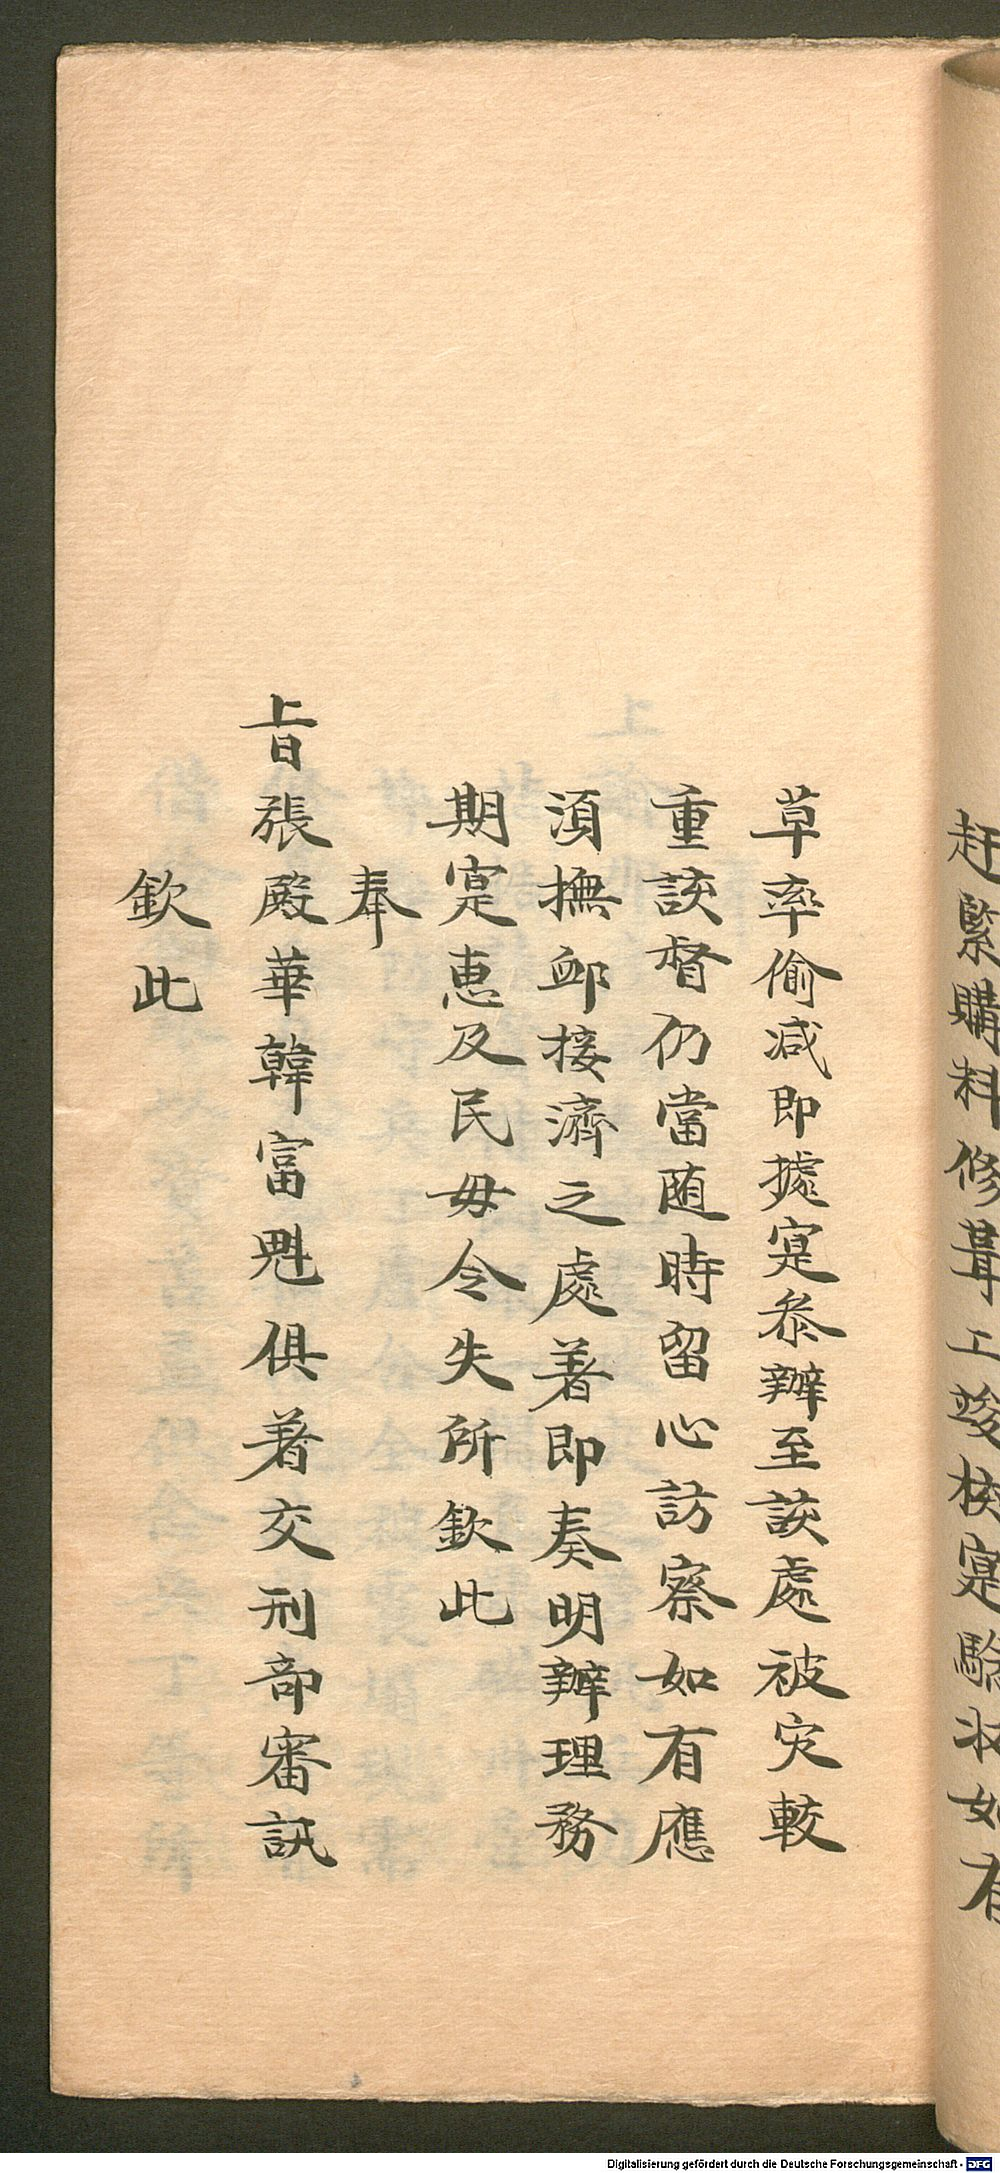 赶緊購料修葺工竣核寔驗收如有
草率偷减即據寔叅辦至該處被灾較
重該督仍當随時留心訪察如有應
湏撫卹接濟之處著即奏明辦理務
期寔惠及民毋令失所欽此
奉
上旨張殿華韓富魁俱著交刑部審訊
欽此
Digitalisierung gefördert durch die Deutsche Forschungsgemeinschaft - DFG